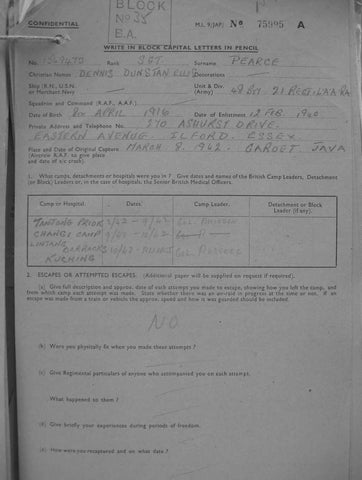 CONFIDENTIAL
BLOCK
No 35
B.A.
M.I. 9/JAP/ No 75995 A
WRITE IN BLOCK CAPITAL LETTERS IN PENCIL
No. Rank SGT Surname PEARCE
Christian Names DENNIS DUNSTAN Decorations
Ship (R.N., U.S.N. or Merchant Navy) Unit & Div. (Army) 21
Squadron and Command (R.A.F., A.A.F.)
Date of Birth APRIL 1916 Date of Enlistment 12 FEB. 1940
Private Address and Telephone No. 270 ASHURST DRIVE.
EASTERN AVENUE ILFORD. ESSEX
Place and Date of Original Capture MARCH 8. 1942. GAROET JAVA
(Aircrew R.A.F. to give place
and date of a/c crash).
1. What camps, detachments or hospitals were you in ? Give dates and names of the British Camp Leaders, Detachment
(or Block) Leaders or, in the case of hospitals, the Senior British Medical Officers.
Camp or Hospital. Dates. Camp Leader. Detachment or Block
Leader (if any).
TANJONG PRIOK
CHANGI CAMP
LINTANG
BARRACKS COL.
KUCHING
2. ESCAPES OR ATTEMPTED ESCAPES. (Additional paper will be supplied on request if required).
(a) Give full description and approx. date of each attempt you made to escape, showing how you left the camp, and
from which camp each attempt was made. State whether there was an air-raid in progress at the time or not. If an
escape was made from a train or vehicle the approx. speed and how it was guarded should be included.
NO
(b) Were you physically fit when you made these attempts ?
(c) Give Regimental particulars of anyone who accompanied you on each attempt.
What happened to them ?
(d) Give briefly your experiences during periods of freedom.
(e) How were you recaptured and on what date ?